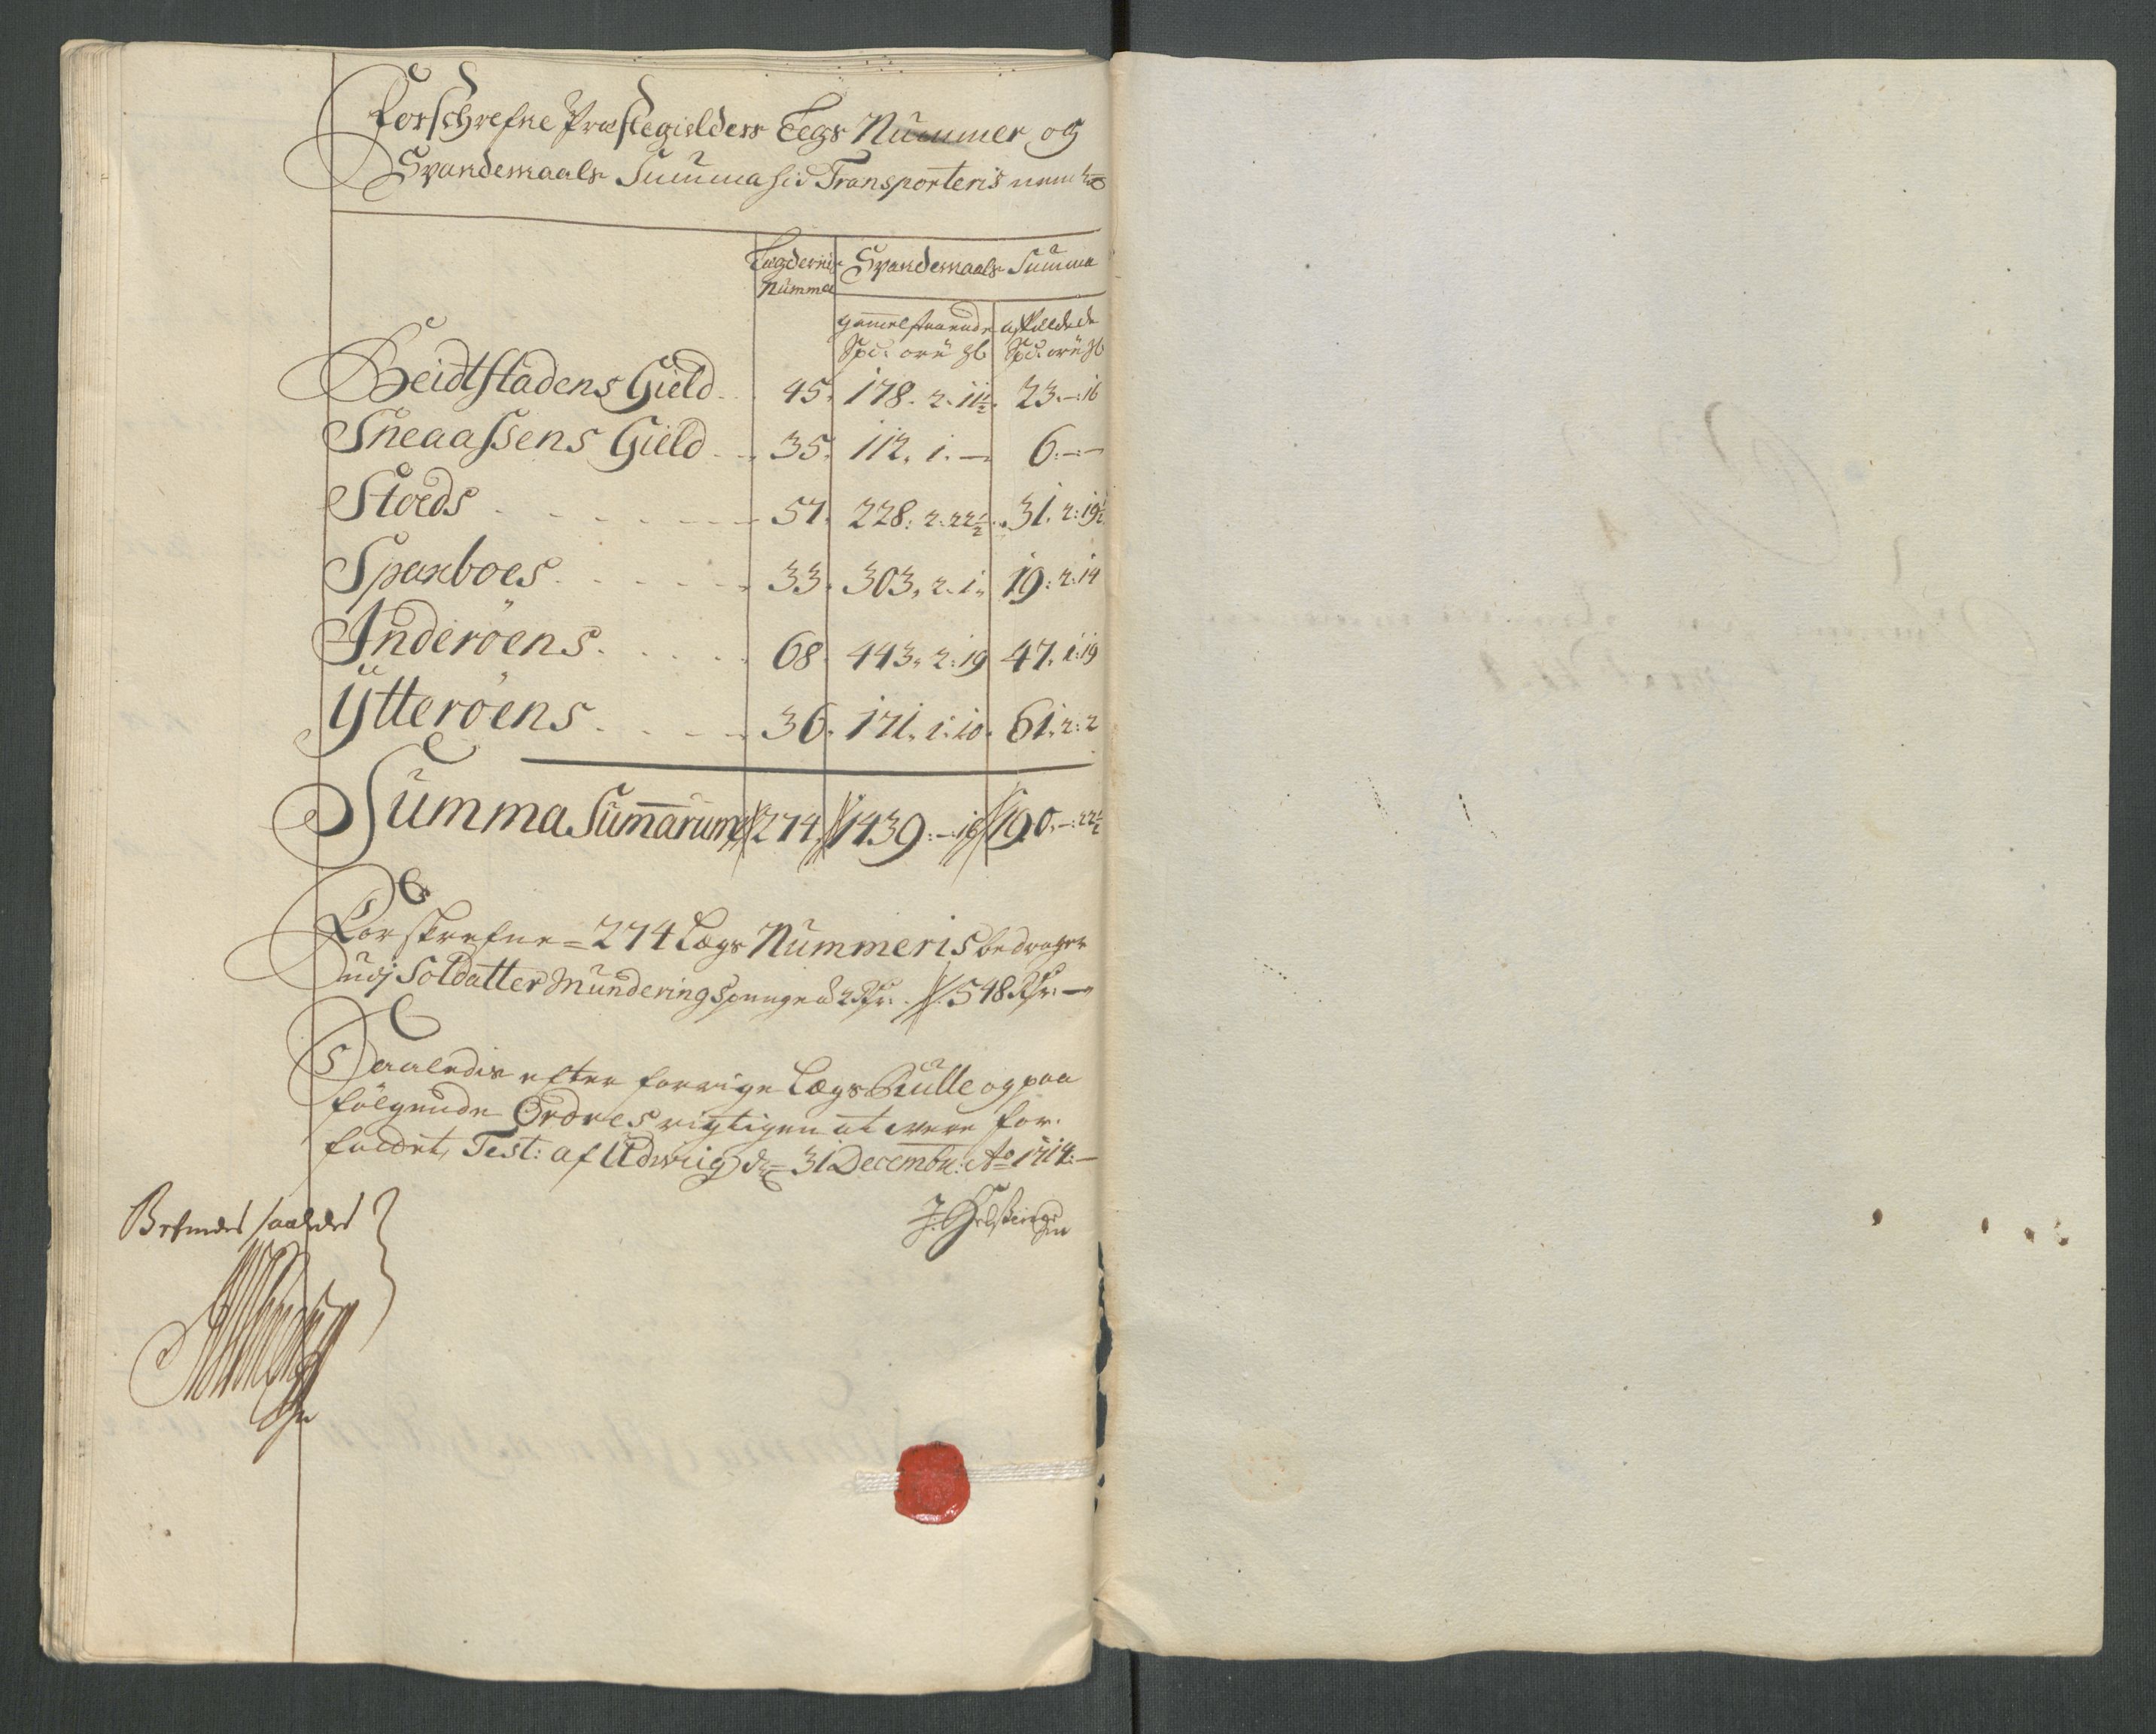 Forschrefne Præstegielders Legs Nummer og
Spandemaals Summa hid Transporteris neml:
Lægdernis Nummer Spandemaals Summa
gammelstaaende afskildede
Spd: øre ℔ Spd: øre ℔
Beidtstadens Gield 45. 178. 2. 11½. 23.-:16
Sneaassens Gield 35. 112. 1. — 6.-:-
Stods 57. 228: 2: 22½. 31. 2: 19½
Sparboes 33. 303, 2. 1. 19: 2: 14
Inderöens 68. 443, 2: 19 47. 1: 19
Ÿtteröens 36. 171, 1: 10. 61, 2: 2
Summa Sum̄arum 274. 1439:-:18 190.-:22½
Forskrefne = 274 Lægs Nummeris bedrager
udj Soldatter Munderings penge à 2 Rdr. 548 Rdr: —
Saaledis efter forrige Lægs Rulle og paa
fölgende Ordres rigtigen at være for-
fattet, Test: af Udviig d: 31 Decembr: Ao 1714:-
J: Helsking
Befindes saaledes